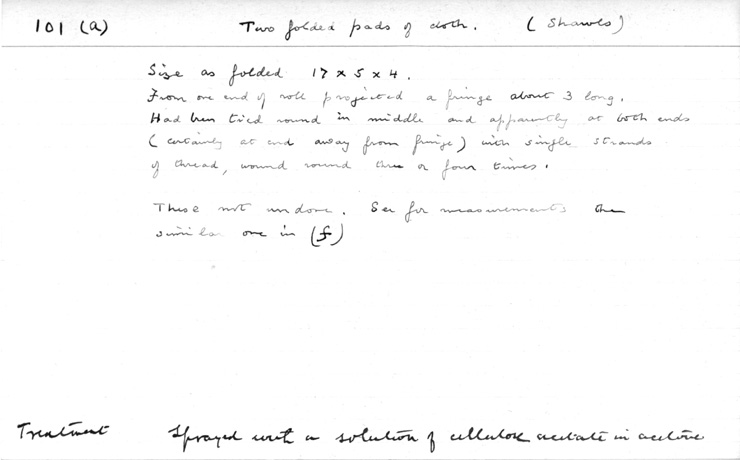 101 (a) Two folded pads of cloth. (Shawls)
Size as folded 17 x 5 x 4.
From one end of roll projected a fringe about 3 long.
Had been tied round in middle and apparently at both ends
(certainly at end away from fringe) with single strands
of thread, wound round three or four times.
These not undone. See for measurements the
similar one in (f)
Treatment Sprayed with a solution of cellulose acetate in acetone